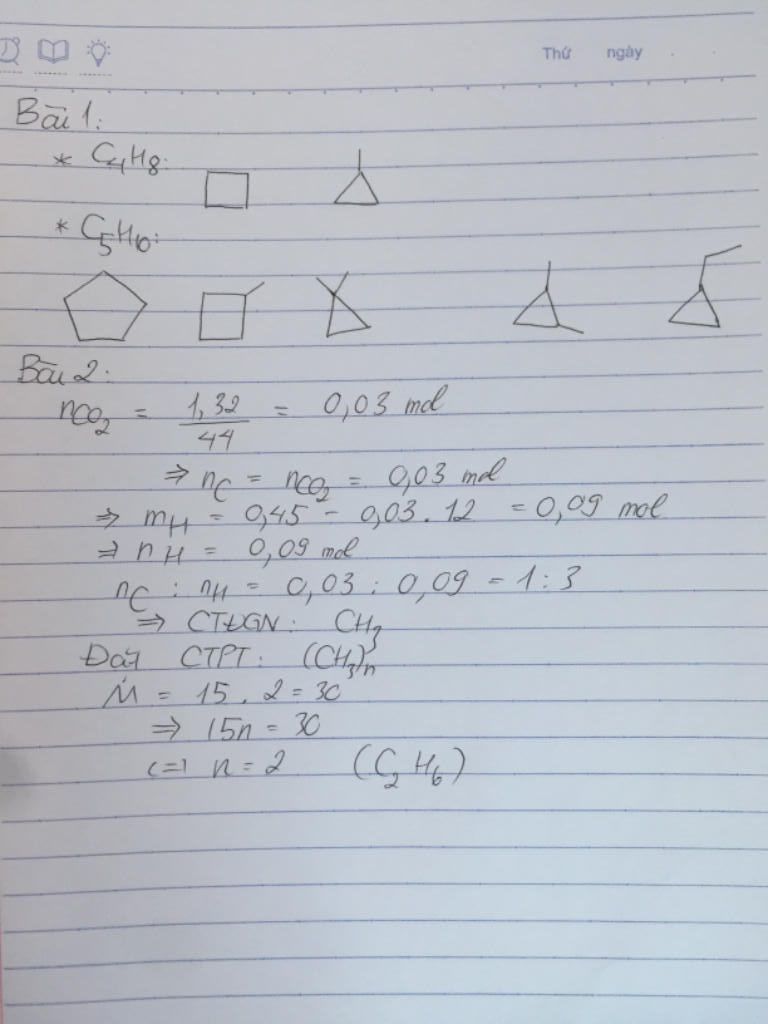 Thứ ngày
Bài 1:
* C₄H₈:
* C₅H₁₀:
Bài 2:
nCO₂ = 1,32/44 = 0,03 mol
⇒ nC = nCO₂ = 0,03 mol
⇒ mH = 0,45 - 0,03 . 12 = 0,09 mol
⇒ nH = 0,09 mol
nC : nH = 0,03 : 0,09 = 1 : 3
⇒ CTĐGN: CH₃
Đặt CTPT: (CH₃)n
M = 15 . 2 = 30
⇒ 15n = 30
<=> n = 2 (C₂H₆)